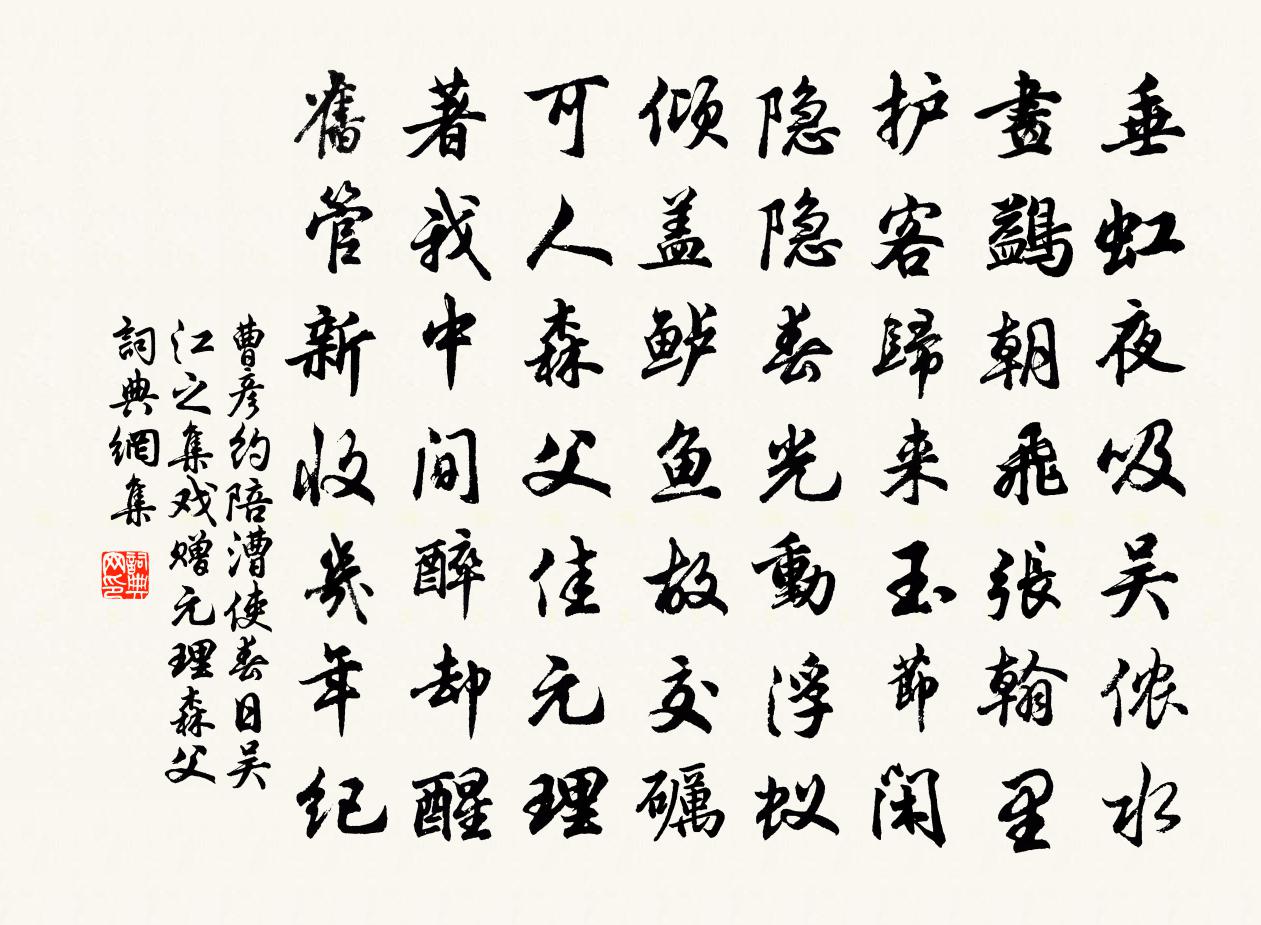 垂虹夜吸吴侬水
畫鷁朝飛張翰里
护客歸来玉節閑
隐隐春光動浮蚁
倾盖鲈魚故交礪
可人森父佳元理
著我中间醉却醒
舊管新收幾年纪
曹彦约陪漕使春日吴
江之集戏赠元理森父
詞典網集
詞典网印